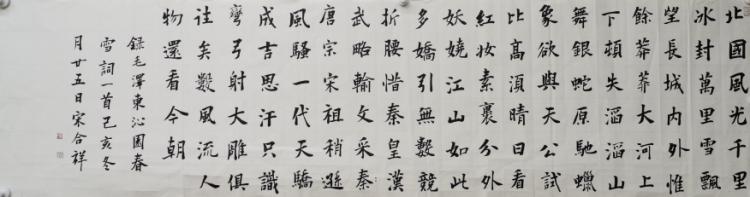 北國風光千里
冰封萬里雪飄
望長城內外惟
餘莽莽大河上
下頓失滔滔山
舞銀蛇原馳蠟
象欲與天公試
比高須晴日看
紅妝素裹分外
妖嬈江山如此
多嬌引無數競
折腰惜秦皇漢
武略輸文采秦
唐宗宋祖稍遜
風騷一代天驕
成吉思汗只識
彎弓射大雕俱
往矣數風流人
物還看今朝
錄毛澤東沁園春
雪詞一首己亥冬
月廿五日宋合祥